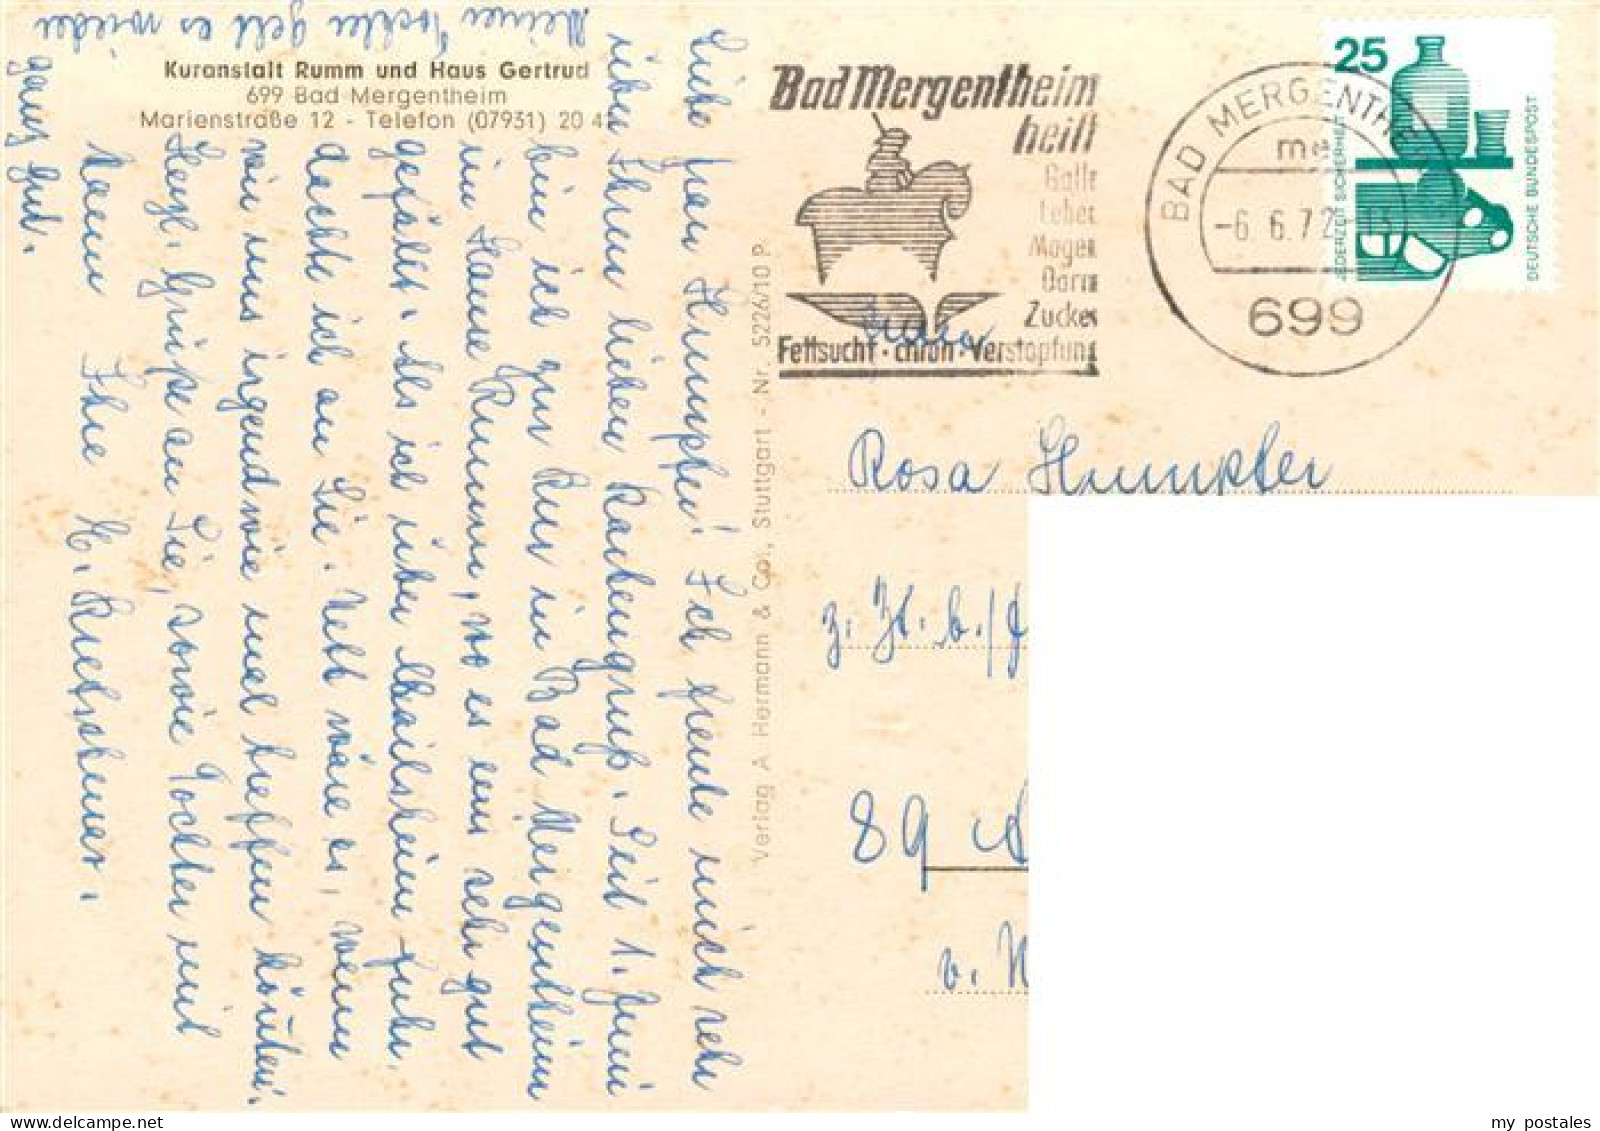 Kuranstalt Rumm und Haus Gertrud
699 Bad Mergentheim
Marienstraße 12 - Telefon (07931) 20 42
Liebe Frau Humpfer! Ich freute mich sehr
über Ihren lieben Kartengruß. Seit 1. Juni
bin ich zur Kur in Bad Mergentheim
im Hause Rumm, wo es mir sehr gut
gefällt. Als ich über fuhr,
dachte ich an Sie. Nett wäre es, wenn
wir uns irgendwie mal treffen könnten!
Herzl. Grüße an Sie, sowie Tochter mit
Ihre
Meiner Tochter geht es wieder
ganz gut.
Verlag A. Hermann & Co., Stuttgart - Nr. 5226/10 P
Bad Mergentheim
heilt
Galle
Leber
Magen
Darm
Zucker
Fettsucht · chron · Verstopfung
BAD MERGENTHEIM
me
-6. 6. 72-13
699
25
JEDERZEIT SICHERHEIT
DEUTSCHE BUNDESPOST
Frau
Rosa Humpfer
z. Zt. b./
89
v.
my postales